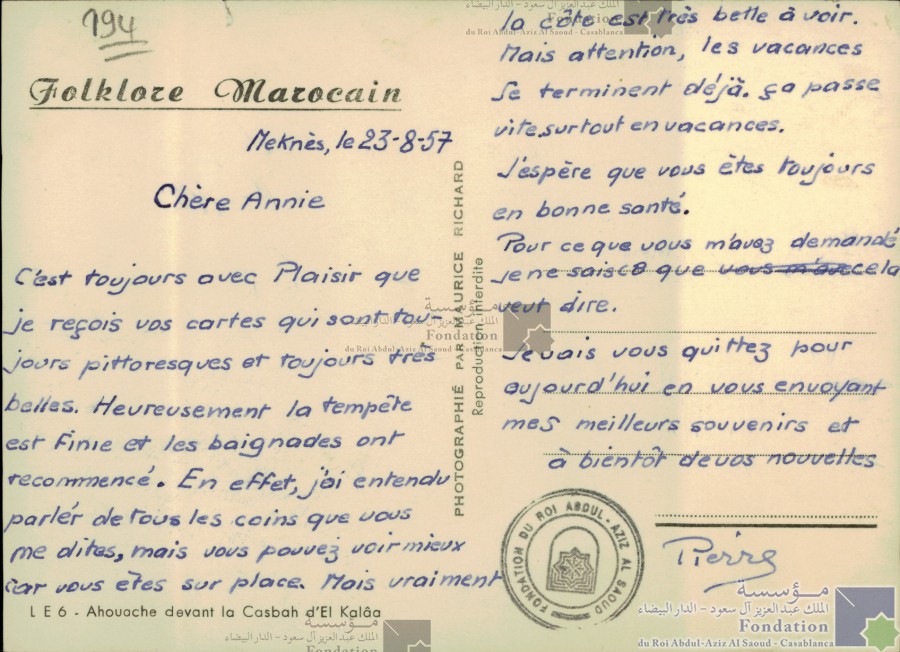 194
Folklore Marocain
Meknès, le 23-8-57
Chère Annie
C'est toujours avec Plaisir que
je reçois vos cartes qui sont tou-
jours pittoresques et toujours très
belles. Heureusement la tempête
est finie et les baignades ont
recommencé. En effet, j'ai entendu
parlér de tous les coins que vous
me dites, mais vous pouvez voir mieux
car vous êtes sur place. Mais vraiment
L E 6 - Ahouache devant la Casbah d'El Kalâa
PHOTOGRAPHIÉ PAR MAURICE RICHARD
Reproduction interdite
la côte est très belle à voir.
Mais attention, les vacances
se terminent déjà. ça passe
vite surtout en vacances.
J'espère que vous êtes toujours
en bonne santé.
Pour ce que vous m'avez demandé
je ne sais ce que vous m'avez cela
veut dire.
Je vais vous quittez pour
aujourd'hui en vous envoyant
mes meilleurs souvenirs et
à bientôt de vos nouvelles
Pierre
FONDATION DU ROI ABDUL-AZIZ AL SAOUD
الملك عبد العزيز آل سعود - الدار البيضاء
Fondation
du Roi Abdul-Aziz Al Saoud - Casablanca
مؤسسة
الملك عبد العزيز آل سعود - الدار البيضاء
Fondation
du Roi Abdul-Aziz Al Saoud - Casablanca
مؤسسة
الملك عبد العزيز آل سعود - الدار البيضاء
Fondation
مؤسسة
الملك عبد العزيز آل سعود - الدار البيضاء
Fondation
du Roi Abdul-Aziz Al Saoud - Casablanca